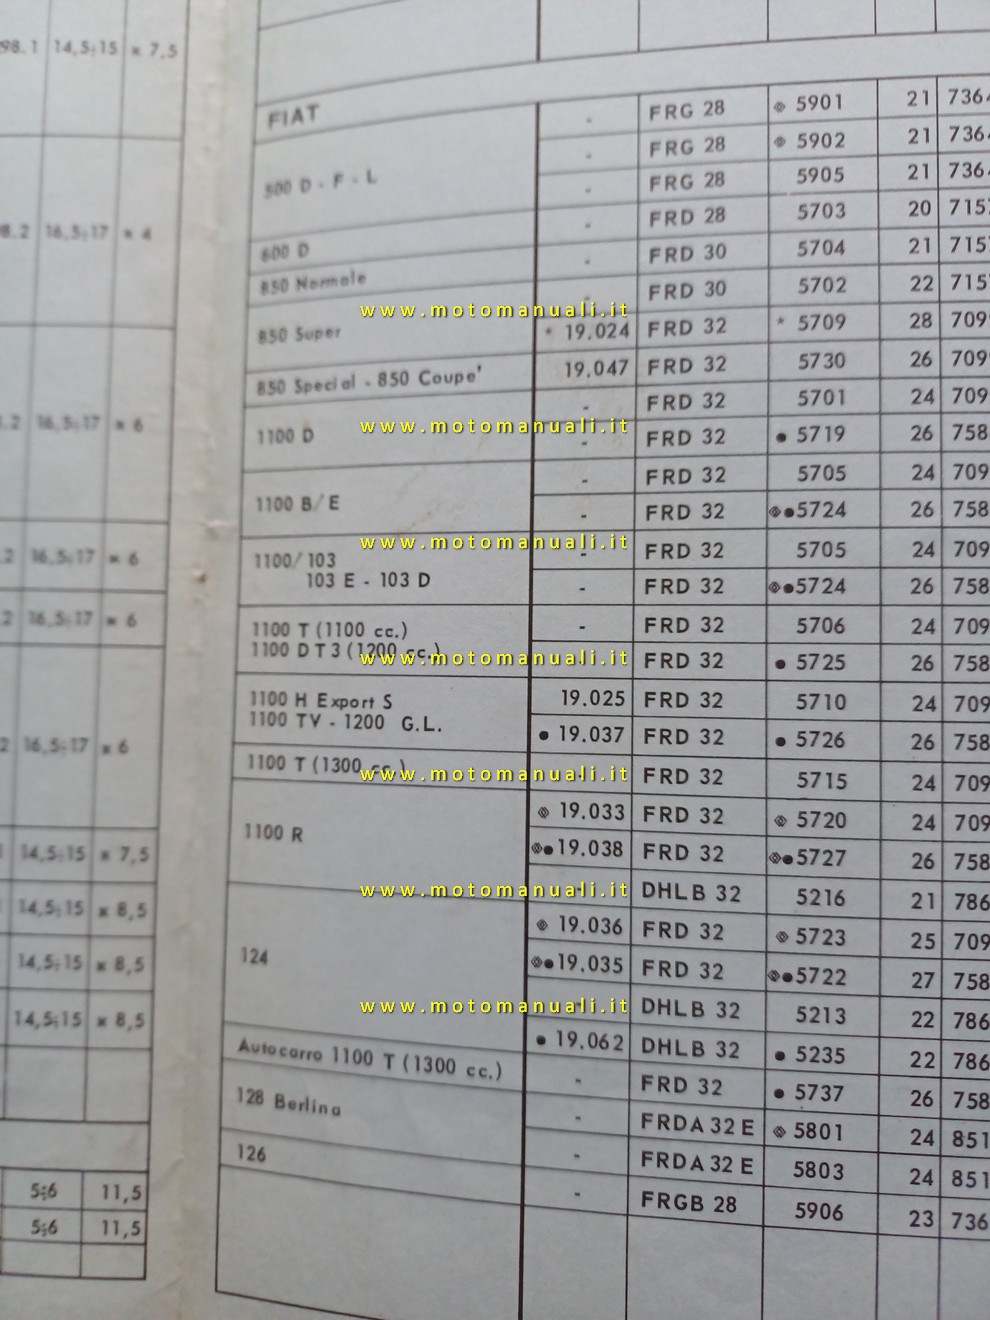 98.1 14,5÷15 × 7,5
16,5÷17 × 4
16,5÷17 × 6
16,5÷17 × 6
16,5÷17 × 6
16,5÷17 × 6
14,5÷15 × 7,5
14,5÷15 × 8,5
14,5÷15 × 8,5
14,5÷15 × 8,5
5÷6 11,5
5÷6 11,5
FIAT
500 D - F - L
600 D
850 Normale
850 Super
850 Special - 850 Coupe'
1100 D
1100 B/E
1100/103
103 E - 103 D
1100 T (1100 cc.)
1100 D T 3 (1200 cc.)
1100 H Export S
1100 TV - 1200 G.L.
1100 T (1300 cc.)
1100 R
124
Autocarro 1100 T (1300 cc.)
128 Berlina
126
- FRG 28 ◈ 5901 21 7364
- FRG 28 ◈ 5902 21 7364
- FRG 28 5905 21 7364
- FRD 28 5703 20 7157
- FRD 30 5704 21 7157
- FRD 30 5702 22 7157
* 19.024 FRD 32 * 5709 28 709
19.047 FRD 32 5730 26 709
- FRD 32 5701 24 709
- FRD 32 ● 5719 26 758
- FRD 32 5705 24 709
- FRD 32 ◈● 5724 26 758
- FRD 32 5705 24 709
- FRD 32 ◈● 5724 26 758
- FRD 32 5706 24 709
- FRD 32 ● 5725 26 758
19.025 FRD 32 5710 24 709
● 19.037 FRD 32 ● 5726 26 758
- FRD 32 5715 24 709
◈ 19.033 FRD 32 ◈ 5720 24 709
◈● 19.038 FRD 32 ◈● 5727 26 758
- DHLB 32 5216 21 786
◈ 19.036 FRD 32 ◈ 5723 25 709
◈● 19.035 FRD 32 ◈● 5722 27 758
- DHLB 32 5213 22 786
● 19.062 DHLB 32 ● 5235 22 786
- FRD 32 ● 5737 26 758
- FRDA 32 E ◈ 5801 24 851
- FRDA 32 E 5803 24 851
- FRGB 28 5906 23 736
www.motomanuali.it
www.motomanuali.it
www.motomanuali.it
www.motomanuali.it
www.motomanuali.it
www.motomanuali.it
www.motomanuali.it